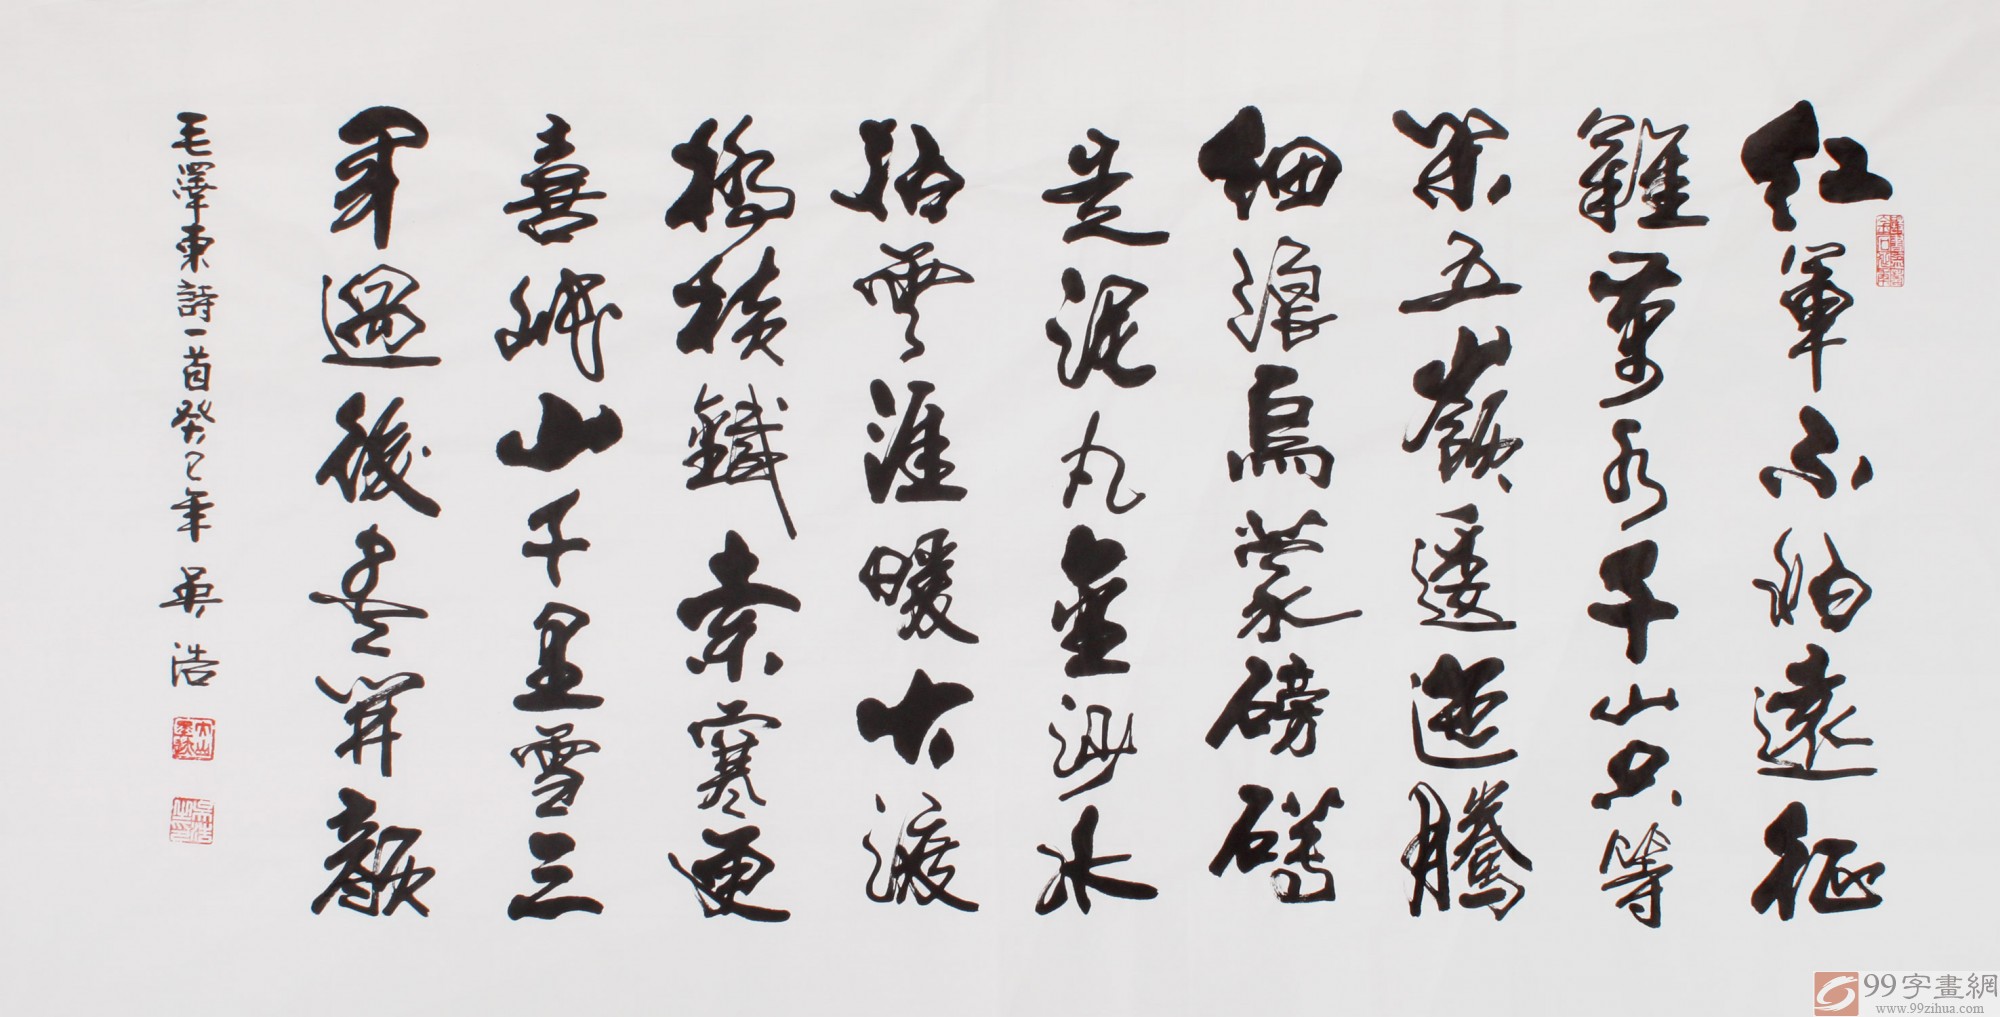 紅軍不怕遠征
難萬水千山只等
閑五嶺逶迤騰
細浪烏蒙磅礴
走泥丸金沙水
拍雲涯暖大渡
橋橫鐵索寒更
喜岷山千里雪三
軍過後盡開顏
毛澤東詩一首癸巳年 吳浩
吳浩之印
99字畫網
www.99zihua.com